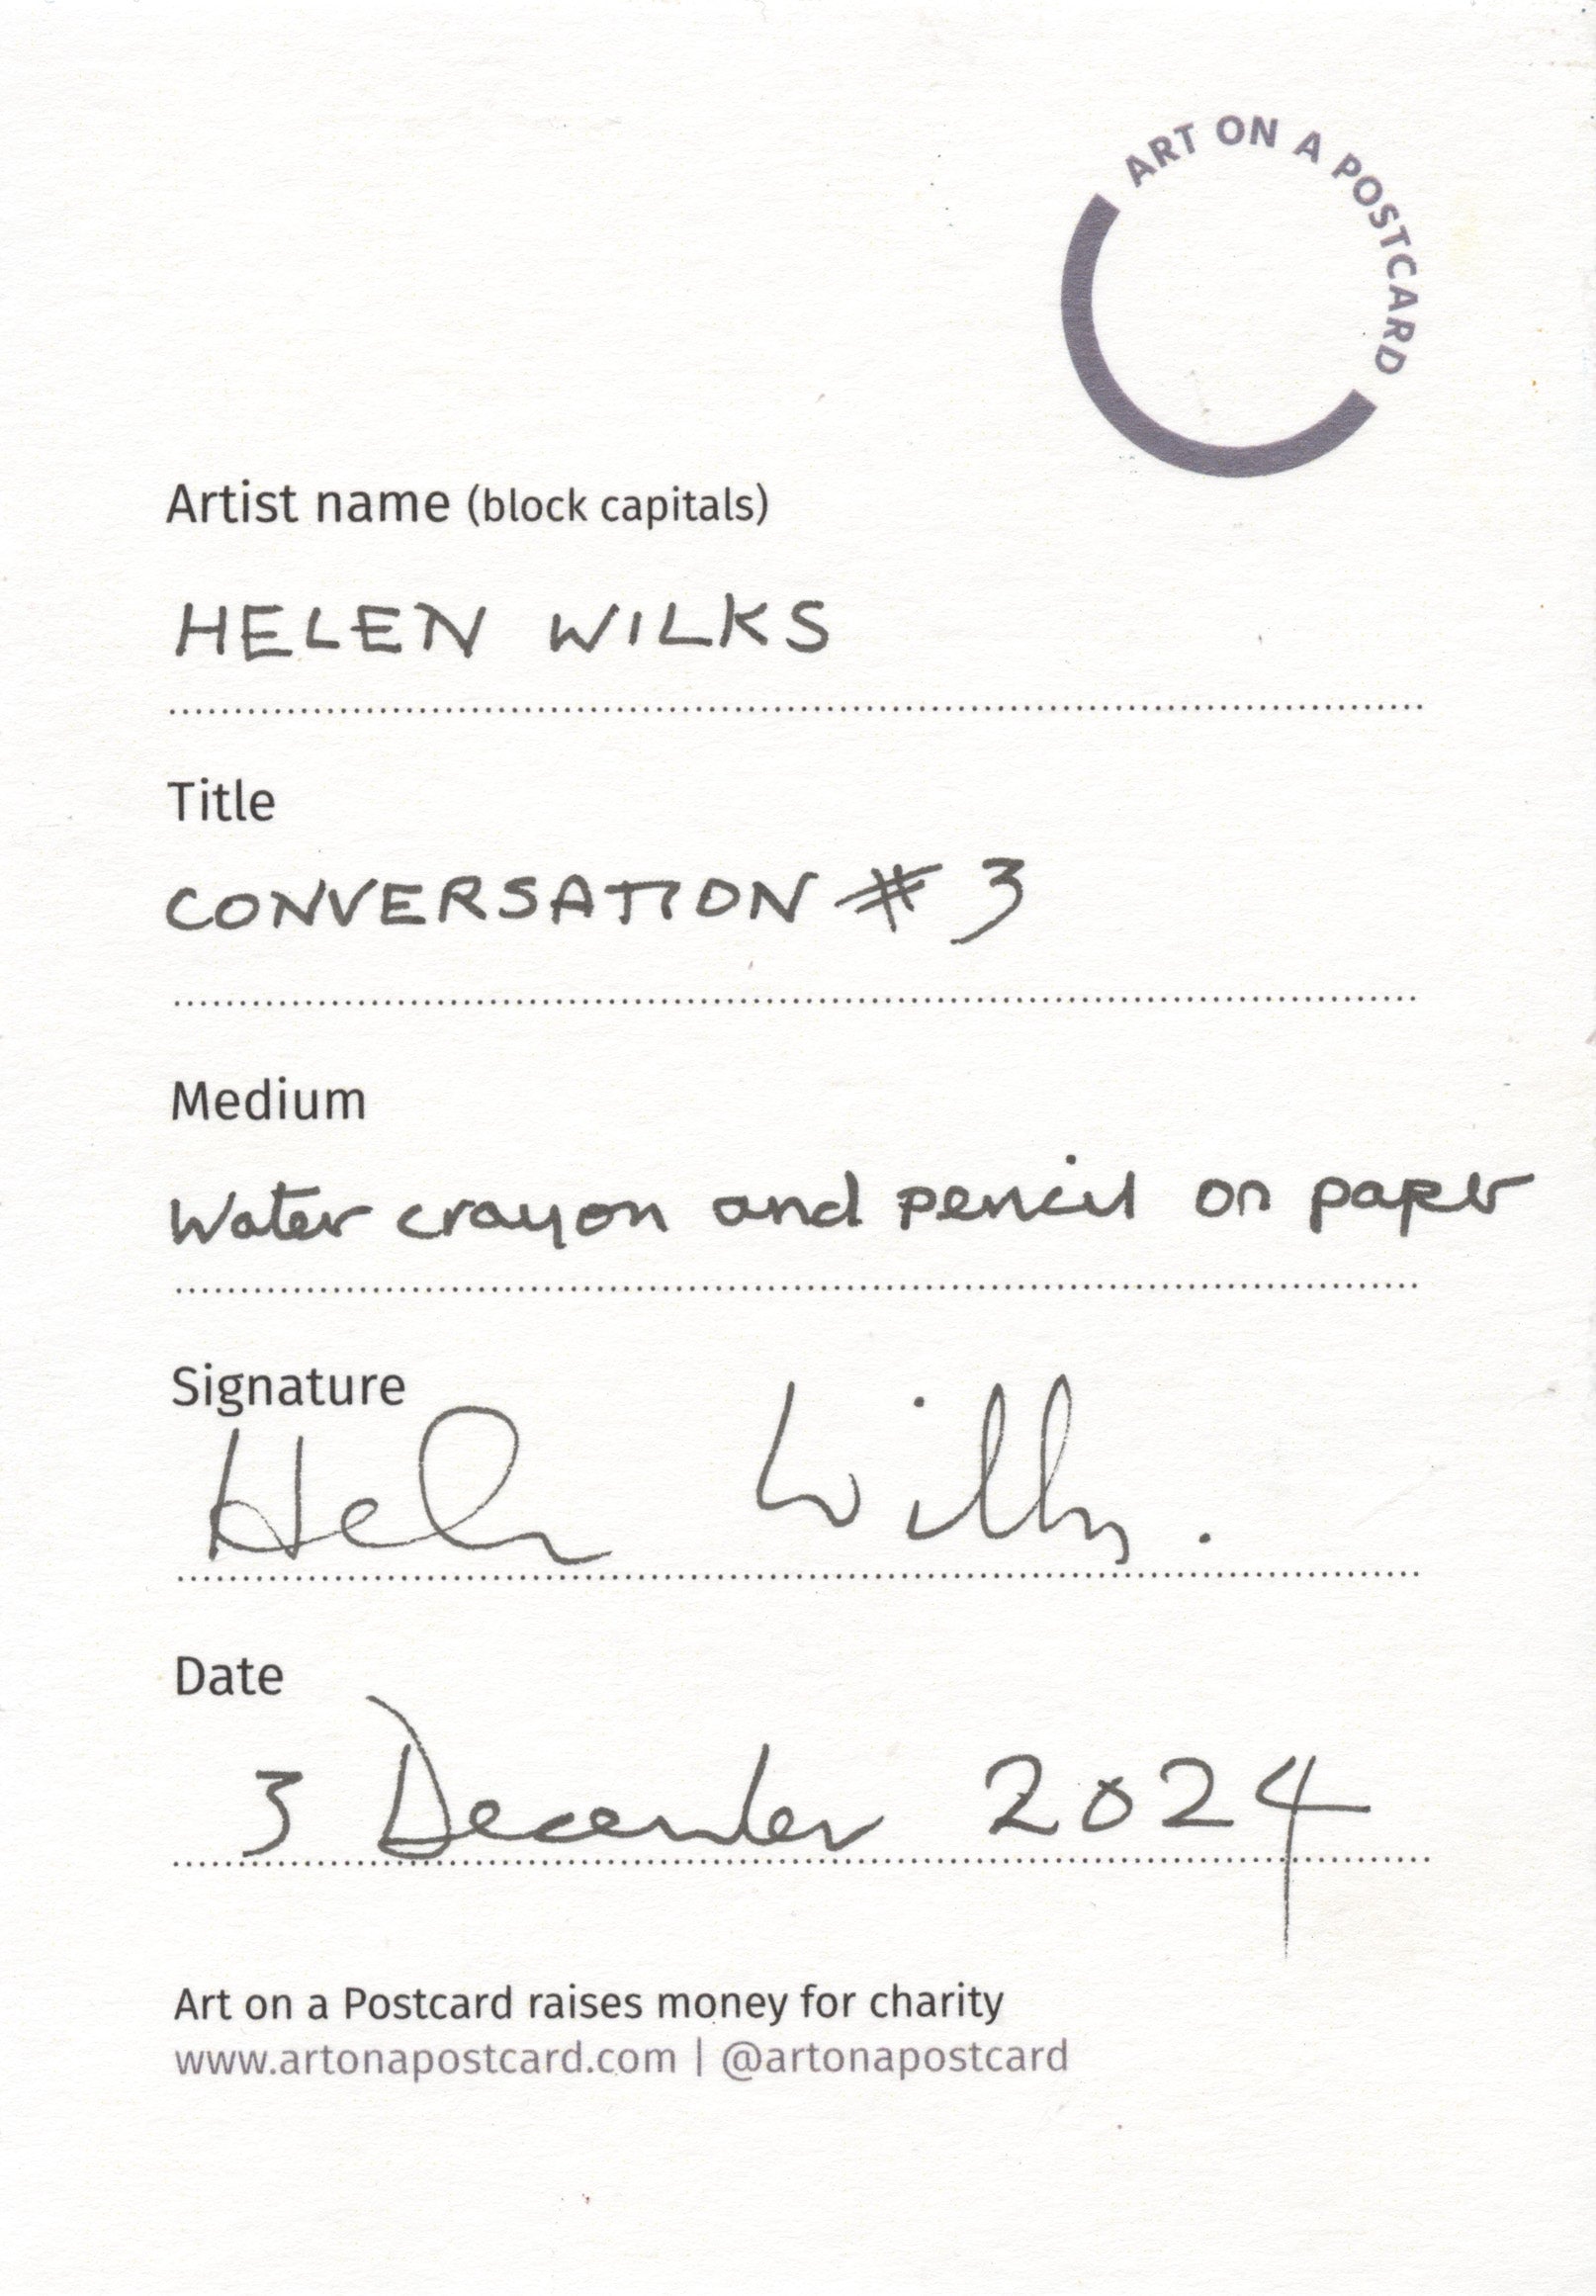 ART ON A POSTCARD
Artist name (block capitals)
HELEN WILKS
Title
CONVERSATION # 3
Medium
Water crayon and pencil on paper
Signature
Helen Wilks.
Date
3 December 2024
Art on a Postcard raises money for charity
www.artonapostcard.com | @artonapostcard